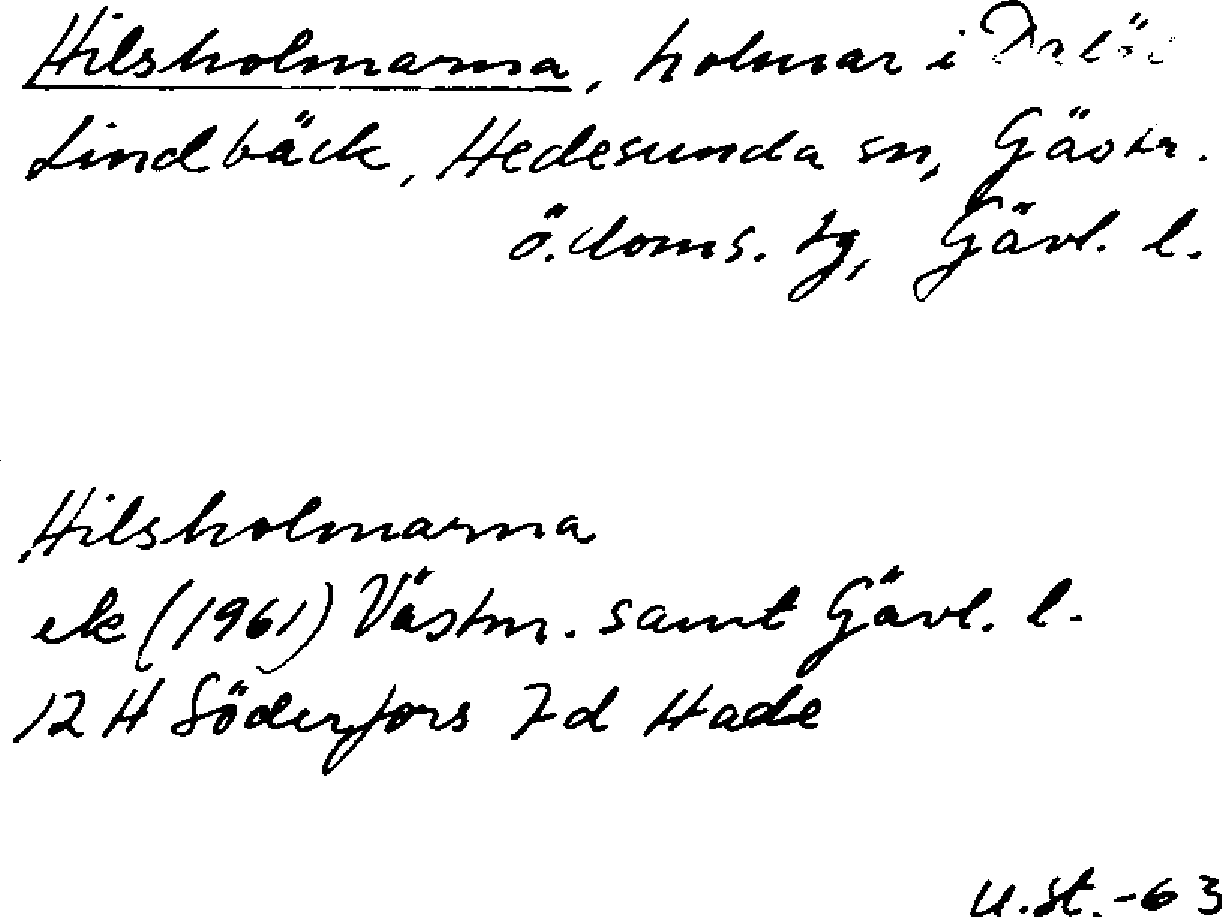 Hilsholmarna, holmar i
Lindbäck, Hedesunda sn, Gästr.
ö. doms. tg, Gävl. l.
Hilsholmarna
ek (1961) Västm. samt Gävl. l.
12 H Söderfors 7d Hade
u.st.-63